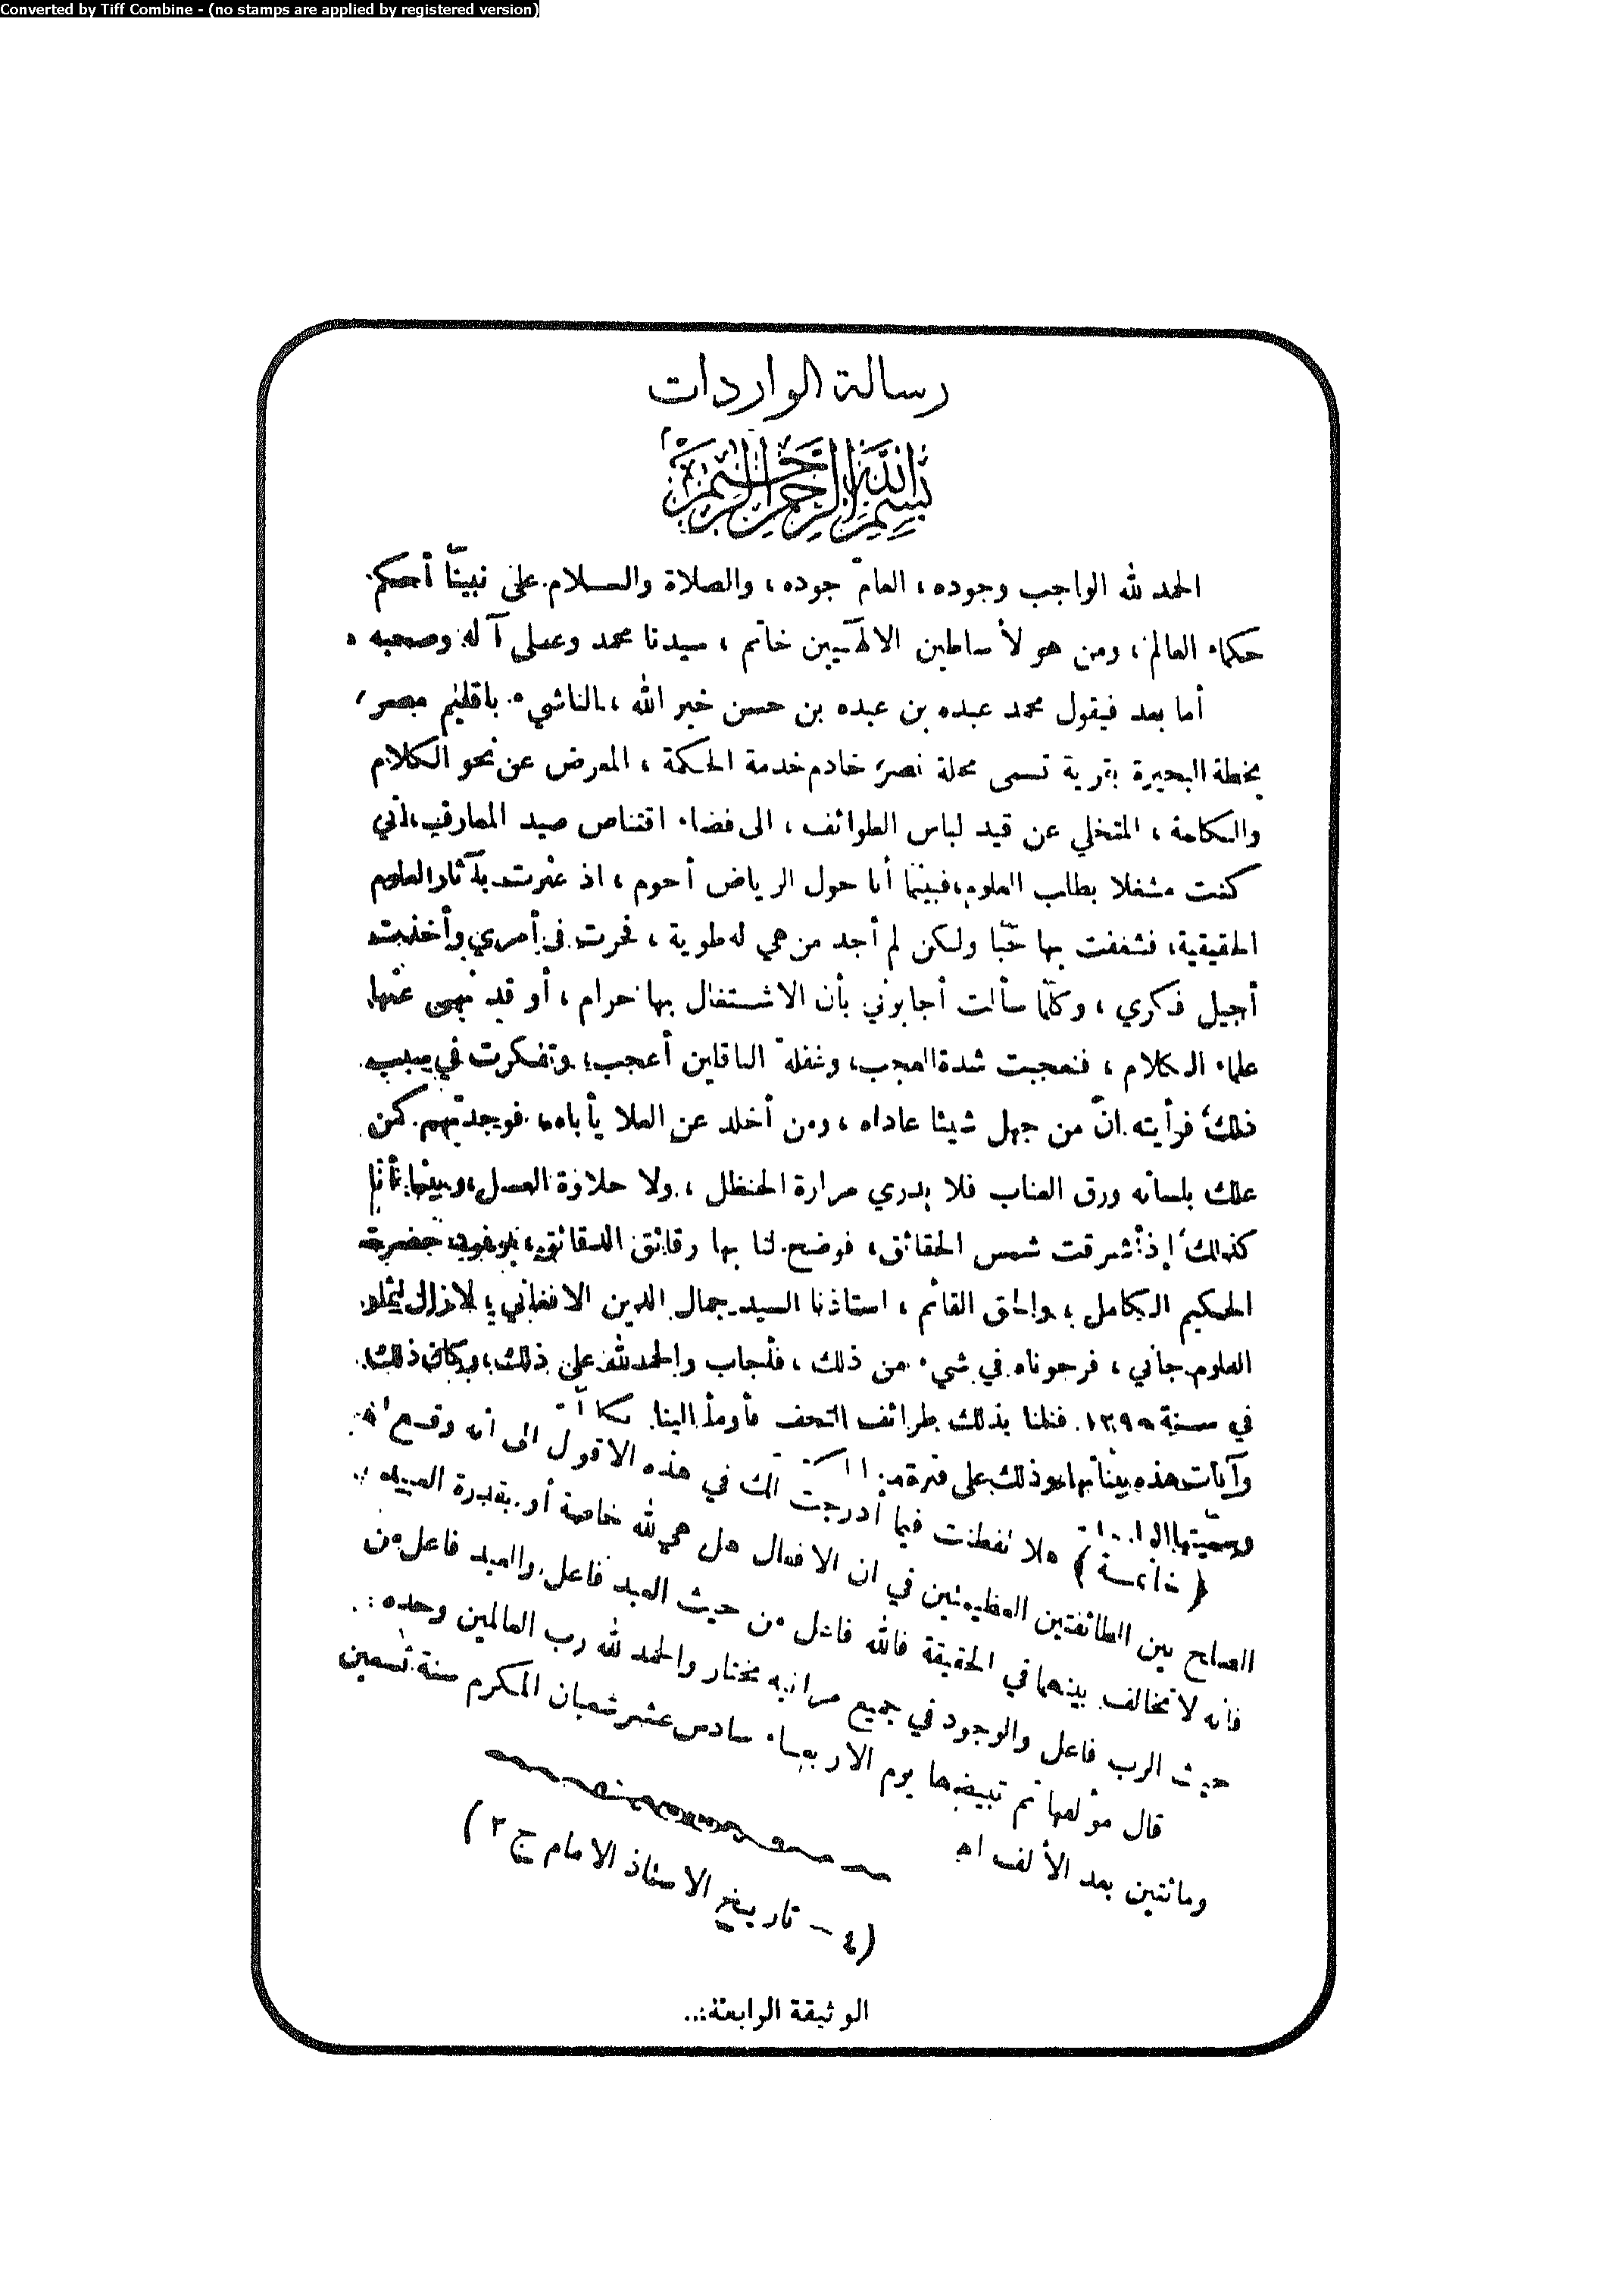 Converted by Tiff Combine - (no stamps are applied by registered version)
رسالة الواردات
بسم الله الرحمن الرحيم
الحمد لله الواجب وجوده، العام جوده، والصلاة والسلام على نبينا أحكم
حكماء العالم، ومن هو لأساطين الالهيين خاتم، سيدنا محمد وعلى آله وصحبه
أما بعد فيقول محمد عبده بن عبده بن حسن خير الله، الناشيء باقليم مصر،
بخطة البحيرة بقرية تسمى محلة نصر، خادم خدمة الحكمة، المعرض عن نحو الكلام
والكلمة، المتخلي عن قيد لباس الطوائف، الى فضاء اقتناص صيد المعارف، أني
كنت مشغلا بطلب العلوم، فبينما أنا حول الرياض أحوم، اذ عثرت بآثار العلوم
الحقيقية، فشغفت بها حبّا ولكن لم أجد من هي له طوية، فحرت في أمري وأخذت
أجيل فكري، وكلما سألت أجابوني بأن الاشتغال بها حرام، أو قد نهى عنها
علماء الكلام، فتعجبت شدة العجب، وغفلة الناقلين أعجب، وتفكرت في سبب
ذلك، فرأيته انّ من جهل شيئا عاداه، ومن أخلد عن العلا يأباه، فوجدتهم كمن
علك بلسانه ورق العناب فلا يدري مرارة الحنظل، ولا حلاوة العسل، وبينما أنا
كذلك إذ أشرقت شمس الحقائق، فوضح لنا بها رقائق الدقائق، بوفود حضرة
الحكيم الكامل، والحق القائم، استاذنا السيد جمال الدين الافغاني، لازال لثمار
العلوم جاني، فرجوناه في شيء من ذلك، فأجاب والحمد لله على ذلك، وكان ذلك
في سنة ١٢٩٠ فنلنا بذلك طرائف التحف فأومأ الينا
وآيات هذه بيناتها وذلك على فترة من
وسميتها
(خاتمة) هلا تفطنت فيما أدرجت لك في هذه الاقول الى أنه وقع
الصلح بين الطائفتين العظيمتين في ان الافعال هل هي لله خاصة أو بقدرة العبيد
فانه لا تخالف بينهما في الحقيقة فالله فاعل من حيث العبد فاعل والعبد فاعل من
حيث الرب فاعل والوجود في جميع مراتبه مختار والحمد لله رب العالمين وحده
قال مؤلفها تم تبييضها يوم الاربعاء سادس عشر شعبان المكرم سنة تسعين
ومائتين بعد الألف اه
(٤ — تاريخ الاستاذ الامام ج ٢)
الوثيقة الرابعة...